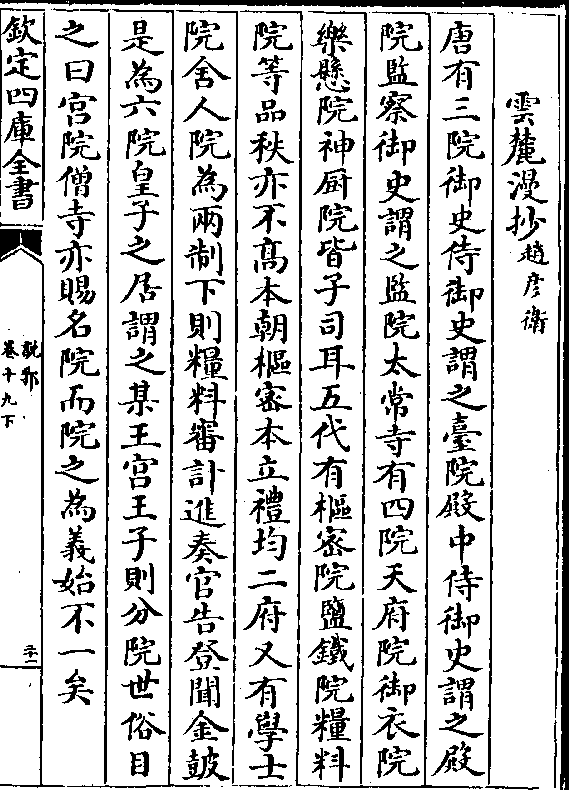 雲麓漫抄趙彦衛
唐有三院御史侍御史謂之臺院殿中侍御史謂之殿
院監察御史謂之監院太常寺有四院天府院御衣院
樂懸院神厨院皆子司耳五代有樞密院鹽鐵院糧料
院等品秩亦不髙本朝樞密本立禮均二府又有學士
院舍人院為兩制下則糧料審計進奏官告登聞金鼓
是為六院皇子之居謂之某王宫王子則分院世俗目
之曰宫院僧寺亦賜名院而院之為義始不一矣
欽定四庫全書
說郛
卷十九下